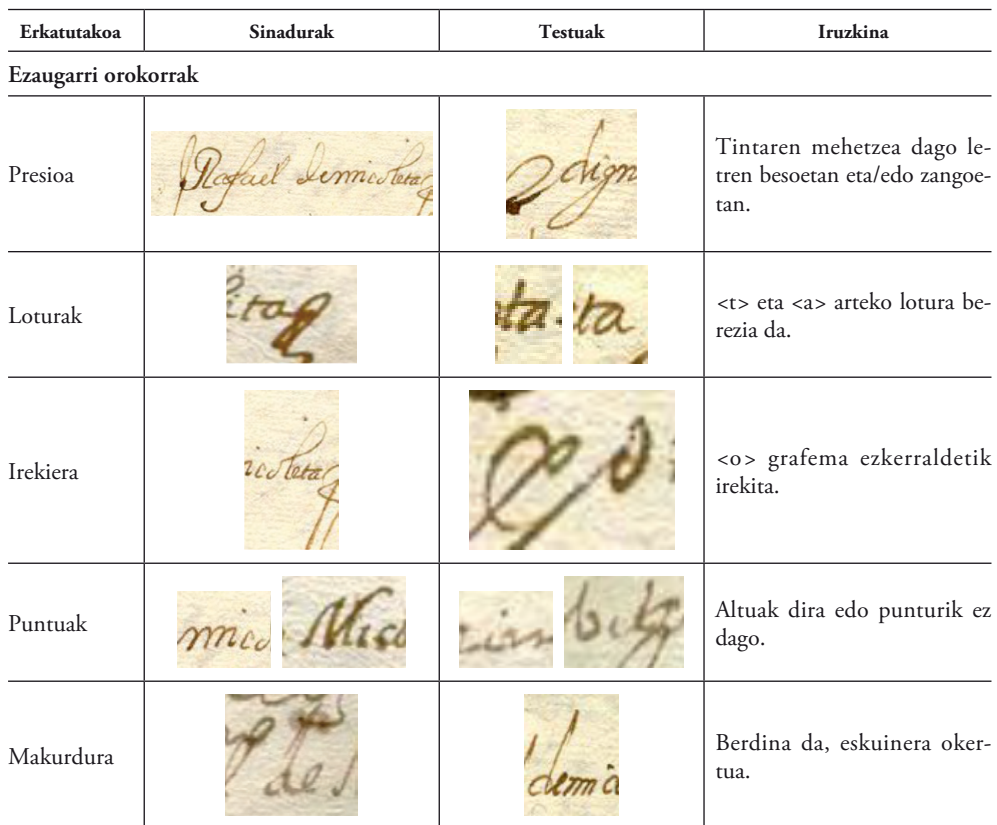 Erkatutakoa Sinadurak Testuak Iruzkina
Ezaugarri orokorrak
Presioa
Rafael demicoleta
dign
Tintaren mehetzea dago le-
tren besoetan eta/edo zangoe-
tan.
Loturak
eta
ta
ta
<t> eta <a> arteko lotura be-
rezia da.
Irekiera
icoleta
<o> grafema ezkerraldetik
irekita.
Puntuak
mico
Mico
Altuak dira edo punturik ez
dago.
Makurdura
de
demic
Berdina da, eskuinera oker-
tua.